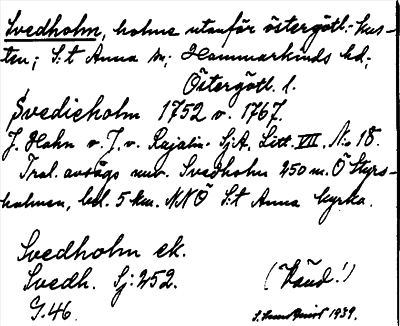 Svedholm, holme utanför östergötl.-kus-
ten; S:t Anna sn; Hammarkinds hd;
Östergötl. l.
Svedieholm 1752 o. 1767.
J. Hahn o. J. v. Rajalin. SjA, Litt. VII, No 18.
Trol. avsågs nuv. Svedholm 250 m. Ö Styrs-
holmen, bel. 5 km. NNÖ S:t Anna kyrka.
Svedholm ek.
Svedh. Sj: 252.
G. 46.
(Väud!)
1939.